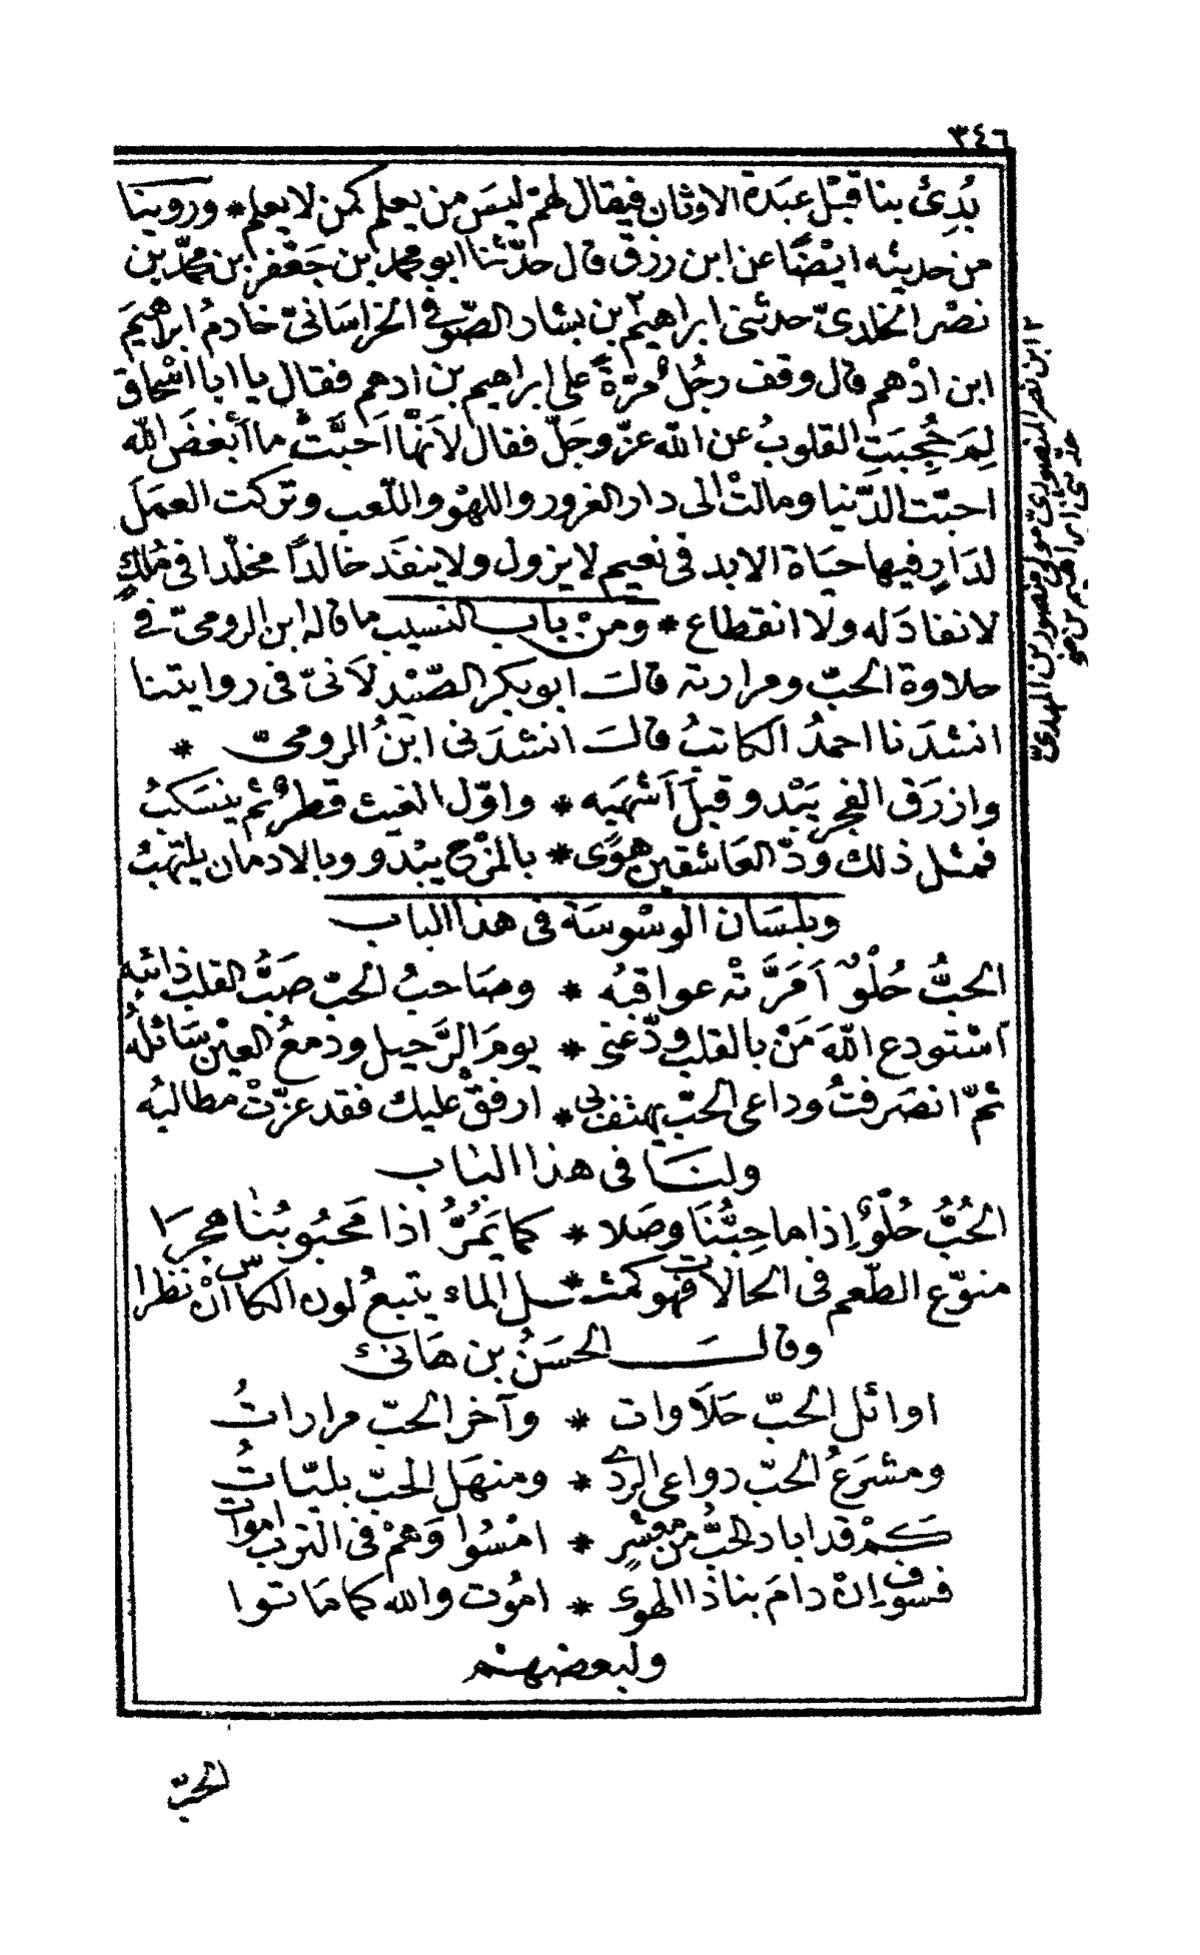 ٣٤٦
بُدِئ بنا قَبْل عبَدة الاوثان فيقال لهم ليسَ من يعلم كمن لا يعلم * وروينا
من حديثه ايضًا عن ابن رزق قال حدّثنا ابو محمد بن جَعْفر بن محمّد بن
نصْر الخلديّ حدثنى ابراهيم ٢ بن بشار الصّوفى الخراسانىّ خادمُ ابراهيمَ
ابن ادْهم قال وقف رجُلٌ مرّةً على ابراهيم بن ادهم فقال يا ابا اسْحاق
لِمَ حُجِبَتِ القلوبُ عن الله عزّ وجلّ فقال لاَنهَّا اَحبَّتْ ما أبغضَ الله
احبّت الدّنيا ومالتْ الى دار الغرور واللهْو واللّعب وتركت العمَلَ
لدَارٍ فيها حيَاة الابد فى نعيم لا يزول ولا ينفَد خالدًا مخلّدا فى مُلكٍ
لا نفادَ له ولا انقطاع * ومنْ باب النسيب ما قاله ابن الرومىّ فى
حلاوة الحبّ ومرارته قال ابو بكر الصّيْدلاَنىّ فى روايتنا
انشدَنا احمدُ الكاتبُ قال انشدَنى ابْنُ الرومىّ *
وازرَق الفجر يَبْدو قبلَ اَشْهَبه * واوّل الغيث قطرٌ ثم ينسَكبُ
فمثل ذلك ودّ العَاشقين هوًى * بالمزْح يبْدو وبالادمان يلتهبُ
وبلسَان الوسْوسَة فى هذا الباب
الحبُّ حُلْوٌ اَمَرَّتْه عواقبُه * وصَاحبُ الحبّ صَبُّ القلب ذائبه
اَسْتودع اللهَ مَنْ بالقلب ودّعنى * يومَ الرَّحيل ودمعُ العيْن سَائلهُ
ثمّ انصَرفتُ وداعى الحبّ يهتف بى * ارفقْ عليك فقد عزّتْ مطالبُه
ولنَا فى هذا الباب
الحُبُّ حُلْوٌ إذا ما حِبُّنَا وصَلا * كما يَمُرُّ اذا مَحبُوبُنا هجرَا
منوّع الطّعم فى الحالات فهو كمثل * الماء يتبعُ لون الكاس انْ نظرا
وقال الحسَنُ بن هَانئ
اوائل الحبّ حَلاَوات * وآخر الحبّ مراراتُ
ومشرَعُ الحبّ دواعى الردى * ومنهَل الحبّ بليّاتُ
كمْ قد اباد الحبُّ من معْشرٍ * امْسُوا وَهمْ فى الترب امواتُ
فسوف إنْ دامَ بنا ذا الهوى * امُوت والله كما مَاتوا
ولبعضهمْ
الحبّ
٢ ابن نصر المنصورىّ مولى منصور بن المهدىّ